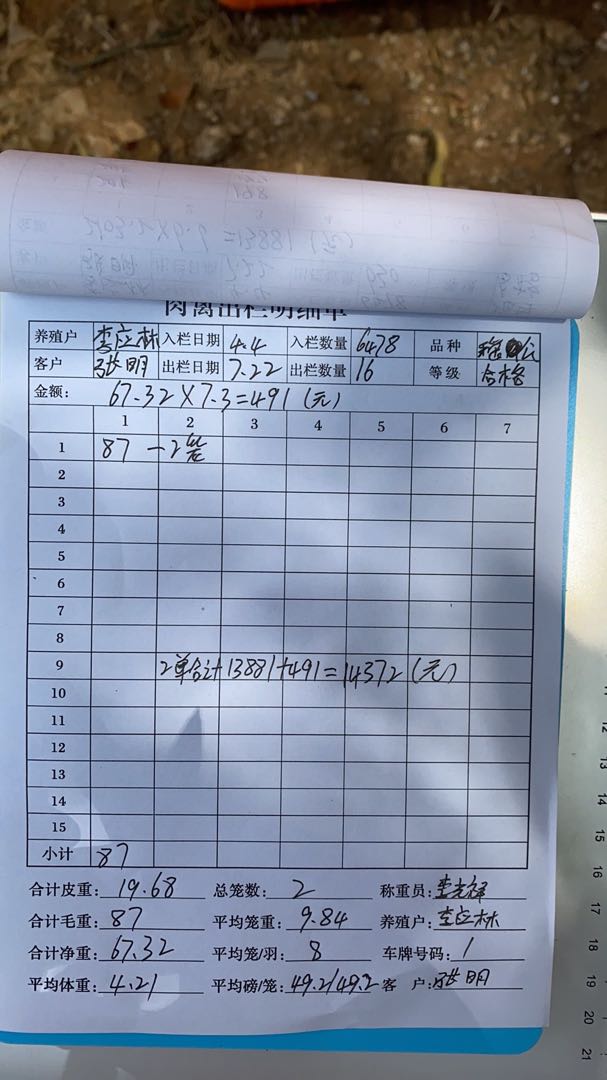 肉禽出栏明细单
养殖户 李应林 入栏日期 4.4 入栏数量 6478 品种 公
客户 张明 出栏日期 7.22 出栏数量 16 等级 合格
金额: 67.32×7.3=491(元)
1 2 3 4 5 6 7
1 87 —2笼
2
3
4
5
6
7
8
9 2单合计13881+491=14372(元)
10
11
12
13
14
15
小计 87
合计皮重: 19.68 总笼数: 2 称重员: 李光祥
合计毛重: 87 平均笼重: 9.84 养殖户: 李应林
合计净重: 67.32 平均笼/羽: 8 车牌号码: 1
平均体重: 4.21 平均磅/笼: 49.2/49.2 客 户: 张明
12
13
14
15
16
17
18
19
20
21